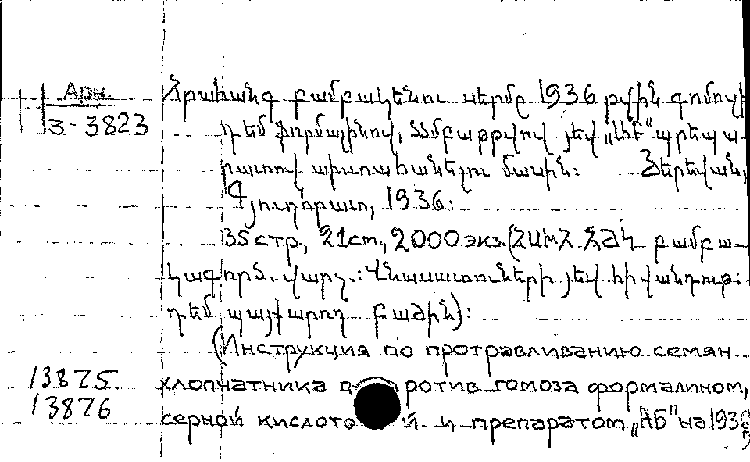 Арм.
3-3823
Հրահանգ բամբակենու սերմը 1936 թվին գոմոզի
դեմ ֆորմալինով, ծծմբաթթվով յեվ „ԱԲ“ պրեպա-
րատով ախտահանելու մասին: Յերեվան,
Գյուղհրատ, 1936.
35 стр., 21 см, 2000 экз. (ՀԱՄԽ ՀԺԿ բամբա-
կագործ. վարչ.: Վնասատուների յեվ հիվանդութ.
դեմ պայքարող բաժին):
(Инструкция по протравливанию семян
13875 хлопчатника против гомоза формалином,
13876 серной кислотой и препаратом „АБ“ на 1936